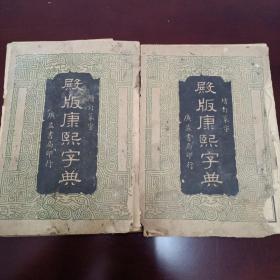 殿版康熙字典
增訂篆字
廣益書局印行
殿版康熙字典
增訂篆字
廣益書局印行